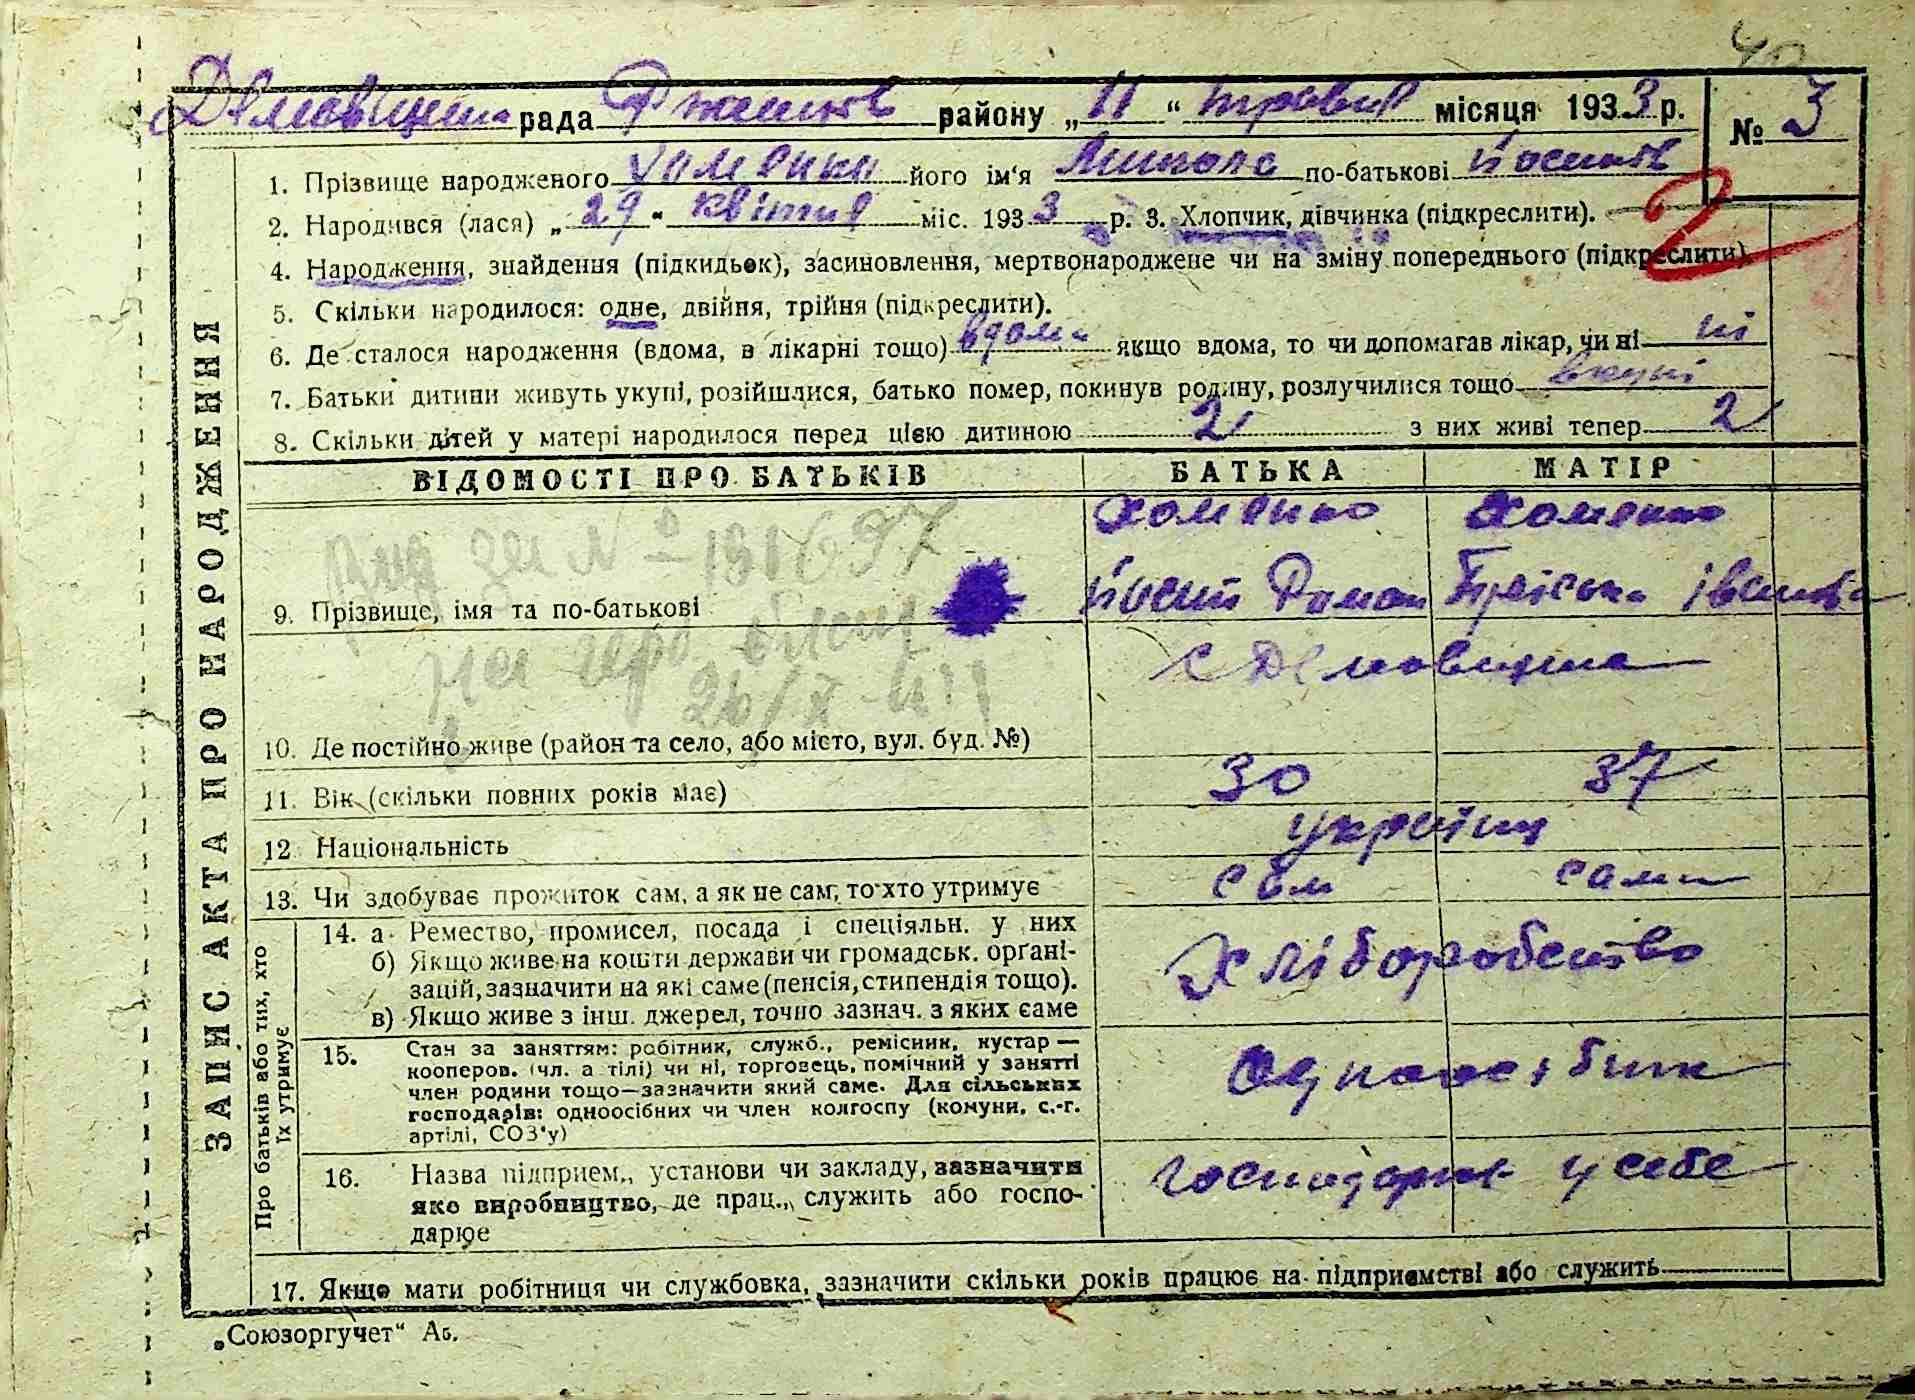 рада района „11“ травня місяця 1933 р. № 3
1. Прізвище народженого Хоменко його ім'я Микола по-батькові Йосипов
2. Народився (лася) „29“ квітня міс. 1933 р. 3. Хлопчик, дівчинка (підкреслити).
4. Народження, знайдення (підкидьок), засиновлення, мертвонароджене чи на зміну попереднього (підкреслити).
2
5. Скільки народилося: одне, двійня, трійня (підкреслити).
6. Де сталося народження (вдома, в лікарні тощо) вдома якщо вдома, то чи допомагав лікар, чи ні ні
7. Батьки дитини живуть укупі, розійшлися, батько помер, покинув родину, розлучилися тощо вкупі
8. Скільки дітей у матері народилося перед цією дитиною 2 з них живі тепер 2
ЗАПИС АКТА ПРО НАРОДЖЕННЯ
ВІДОМОСТІ ПРО БАТЬКІВ БАТЬКА МАТІР
Хоменко Хоменко
9. Прізвище, імя та по-батькові Йосип Роман Іванова
10. Де постійно живе (район та село, або місто, вул. буд. №)
11. Вік (скільки повних років має) 30 37
12 Національність україн
13. Чи здобуває прожиток сам, а як не сам, то хто утримує сам сама
Про батьків або тих, хто їх утримує
14. а Ремество, промисел, посада і спеціяльн. у них
б) Якщо живе на кошти держави чи громадськ. орґані-
зацій, зазначити на які саме (пенсія, стипендія тощо).
в) Якщо живе з інш. джерел, точно зазнач. з яких саме
Хліборобство
15. Стан за заняттям: робітник, служб., ремісник, кустар —
кооперов. (чл. а тілі) чи ні, торговець, помічний у занятті
член родини тощо—зазначити який саме. Для сільських
господарів: одноосібних чи член колгоспу (комуни, с.-г.
артілі, СОЗ'у)
Одноосібник
16. Назва підприєм., установи чи закладу, зазначити
яке виробництво, де прац., служить або госпо-
дарює
господарює у себе
17. Якщо мати робітниця чи службовка, зазначити скільки років працює на підприємстві або служить
„Союзоргучет“ Аз.